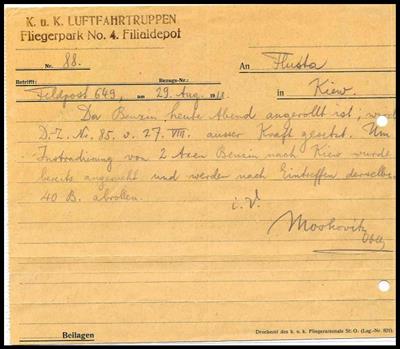 K. u. K. LUFTFAHRTRUPPEN
Fliegerpark No. 4. Filialdepot
Nr. 88. An Flusta
Betrifft: Bezugs-Nr.: in Kiew.
Feldpost 649, am 29. Aug. 1918.
Da Benzin heute Abend angerollt ist, wird
D.-Z. Nr. 85. v. 27. VIII. ausser Kraft gesetzt. Um
Instradierung von 2 Axen Benzin nach Kiew wurde
bereits angesucht und werden nach Eintreffen derselben
40 B. abrollen.
i. V.
Moskovitz
Beilagen
Druckerei des k. u. k. Fliegerarsenals St. O. (Lag.-No. 821).